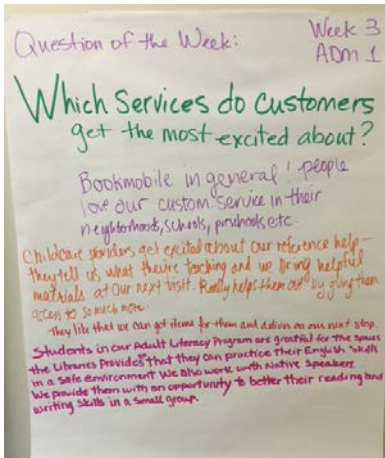 Question of the Week:
Week 3
ADM 1
Which Services do Customers
get the most excited about?
Bookmobile in general! people
love our custom service in their
neighborhoods, schools, preschools, etc.
Childcare providers get excited about our reference help-
they tell us what they're teaching and we bring helpful
materials at our next visit. Really helps them out by giving them
access to so much more.
They like that we can get items for them and deliver on our next stop.
Students in our Adult Literacy Program are greatful for the spaces
the Libraries Provides that they can practice their English Skills
in a safe environment. We also work with Native Speakers
We provide them with an opportunity to better their reading and
writing skills in a small group.